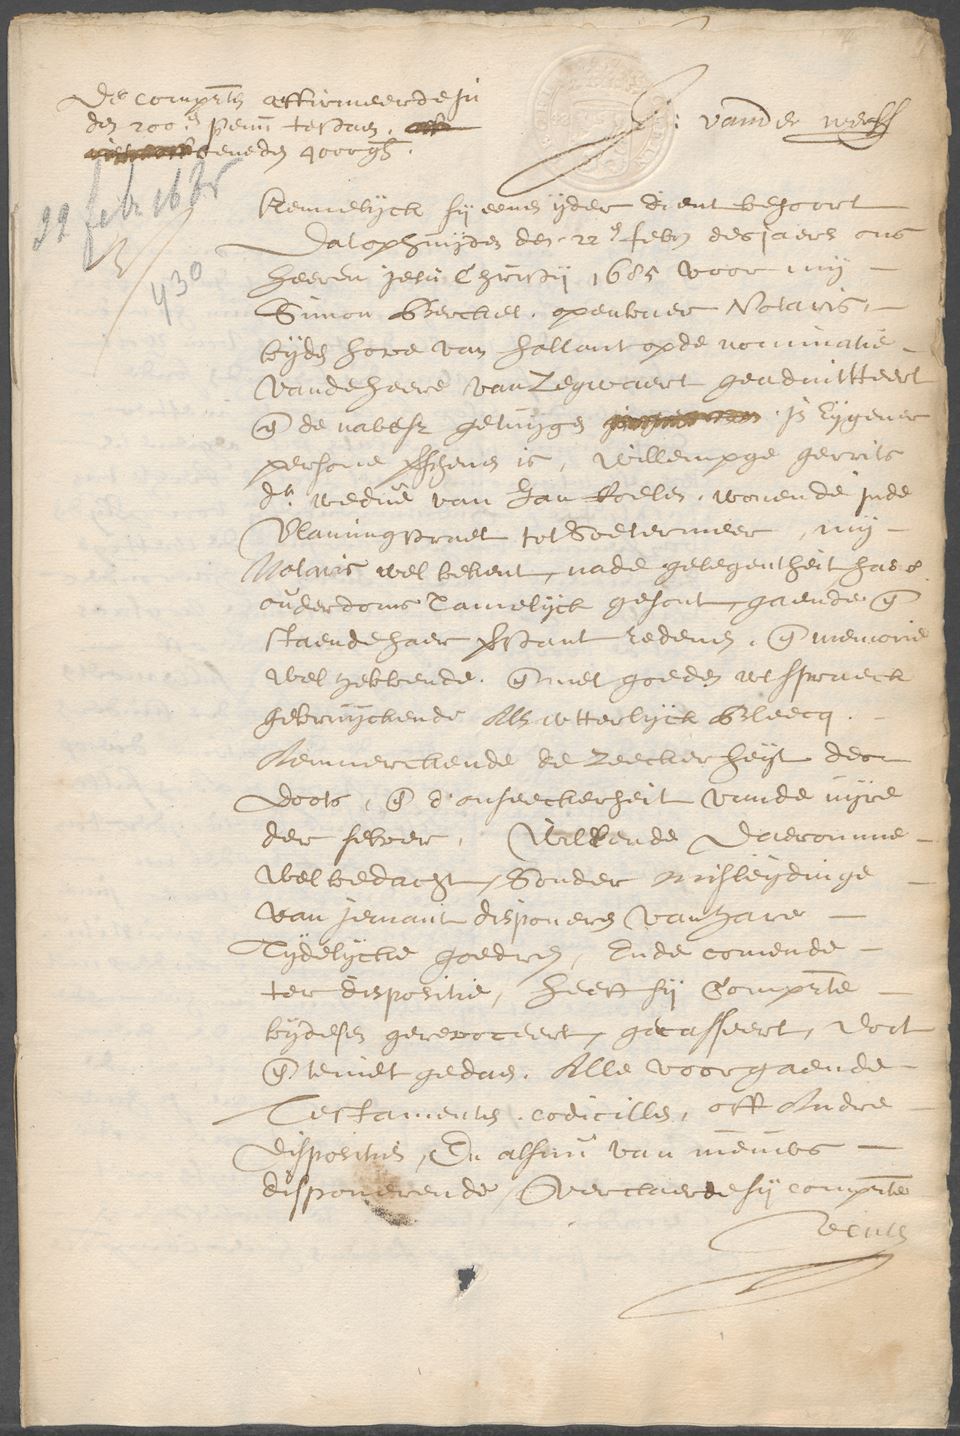 De comp:te affirmeerde in
den 200:e penn te staen,
beneden 4000 gls.
22 feb 1685
430
: vander werff
Kennelyck sij eenen ijder dient behoort
Dat op huijden den 22:e febry des jaers ons
heeren Jesu Christij 1685 voor mij
Simon Berckel, openbaer Notaris,
bijden hove van hollant opde nominatie
vande heere van Zegwaert geadmitteert
en de nabesz getuijgen in Eijgener
persone psscheenen is, Willempge gerrits
dr. weduwe van Jan Roelen, wonende inde
Vlamingstraet tot Soetermeer, mij
Notaris wel bekent, nade gelegentheit haers
ouderdoms Tamelijck gesont, gaende en
staende haer verstant redenen, en memorie
wel hebbende, en met goeden wtspraeck
gebruijckende Als wtterlijck bleecq.
Aenmerckende de Zeeckerheijt des
doots, en d'onseeckerheit vande uijre
der selver, Willende Daeromme
welbedacht, Sonder misleijdinge
van jemant disponeren van hare
Tijdelijcke goederen, Ende comende
ter dispositie, heeft sij Comp:te
bijdesen gerevoceert, gecasseert, doot
en te niet gedaen. Alle voorgaende
Testamenten, codicillen, oft Andre
dispositien, En alsnu van nieuws
disponerende, Verclaerde sij comp:te